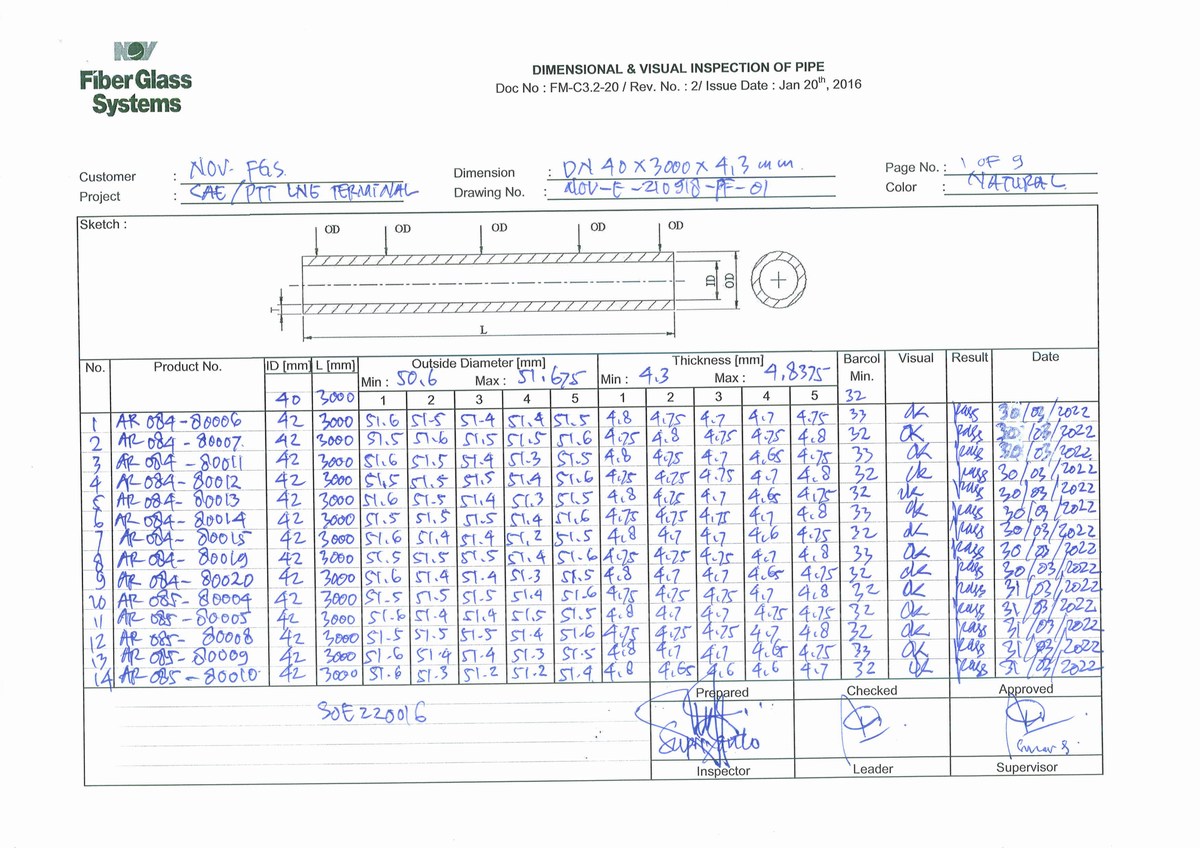 NOV
FiberGlass
Systems
DIMENSIONAL & VISUAL INSPECTION OF PIPE
Doc No : FM-C3.2-20 / Rev. No. : 2/ Issue Date : Jan 20th, 2016
Customer : NOV. FGS. Dimension : DN 40 X 3000 X 4,3 mm. Page No. : 1 OF 9
Project : CAE/PTT LNE TERMINAL Drawing No. : NOV-E-210918-PF-01 Color : NATURAL
Sketch :
OD OD OD OD OD
ID OD
T
L
No. Product No. ID [mm] L [mm] Outside Diameter [mm] Thickness [mm] Barcol Min. Visual Result Date
Min : 50.6 Max : 51.675 Min : 4.3 Max : 4.8375
40 3000 1 2 3 4 5 1 2 3 4 5 32
1 AR 084-80006 42 3000 51.6 51.5 51.4 51.4 51.5 4.8 4.75 4.7 4.7 4.75 33 OK pass 30/03/2022
2 AR 084-80007 42 3000 51.5 51.6 51.5 51.5 51.6 4.75 4.8 4.75 4.75 4.8 32 OK pass 30/03/2022
3 AR 084-80011 42 3000 51.6 51.5 51.4 51.3 51.5 4.8 4.75 4.7 4.65 4.75 33 OK pass 30/03/2022
4 AR 084-80012 42 3000 51.5 51.5 51.5 51.4 51.6 4.75 4.75 4.75 4.7 4.8 32 OK pass 30/03/2022
5 AR 084-80013 42 3000 51.6 51.5 51.4 51.3 51.5 4.8 4.75 4.7 4.65 4.75 32 OK pass 30/03/2022
6 AR 084-80014 42 3000 51.5 51.5 51.5 51.4 51.6 4.75 4.75 4.75 4.7 4.8 33 OK pass 30/03/2022
7 AR 084-80015 42 3000 51.6 51.4 51.4 51.2 51.5 4.8 4.7 4.7 4.6 4.75 32 OK pass 30/03/2022
8 AR 084-80019 42 3000 51.5 51.5 51.5 51.4 51.6 4.75 4.75 4.75 4.7 4.8 33 OK pass 30/03/2022
9 AR 084-80020 42 3000 51.6 51.4 51.4 51.3 51.5 4.8 4.7 4.7 4.65 4.75 32 OK pass 30/03/2022
10 AR 085-80004 42 3000 51.5 51.5 51.5 51.4 51.6 4.75 4.75 4.75 4.7 4.8 32 OK pass 31/03/2022
11 AR 085-80005 42 3000 51.6 51.4 51.4 51.5 51.5 4.8 4.7 4.7 4.75 4.75 32 OK pass 31/03/2022
12 AR 085-80008 42 3000 51.5 51.5 51.5 51.4 51.6 4.75 4.75 4.75 4.7 4.8 32 OK pass 31/03/2022
13 AR 085-80009 42 3000 51.6 51.4 51.4 51.3 51.5 4.8 4.7 4.7 4.65 4.75 33 OK pass 31/03/2022
14 AR 085-80010 42 3000 51.6 51.3 51.2 51.2 51.4 4.8 4.65 4.6 4.6 4.7 32 OK pass 31/03/2022
SOE220016
Prepared Checked Approved
Inspector Leader Supervisor